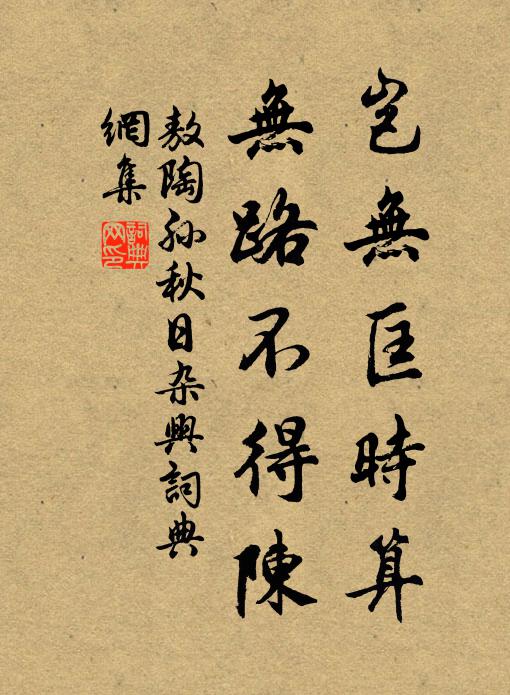 岂無匡時算
無路不得陳
敖陶孙秋日杂興詞典
網集
詞典
网印